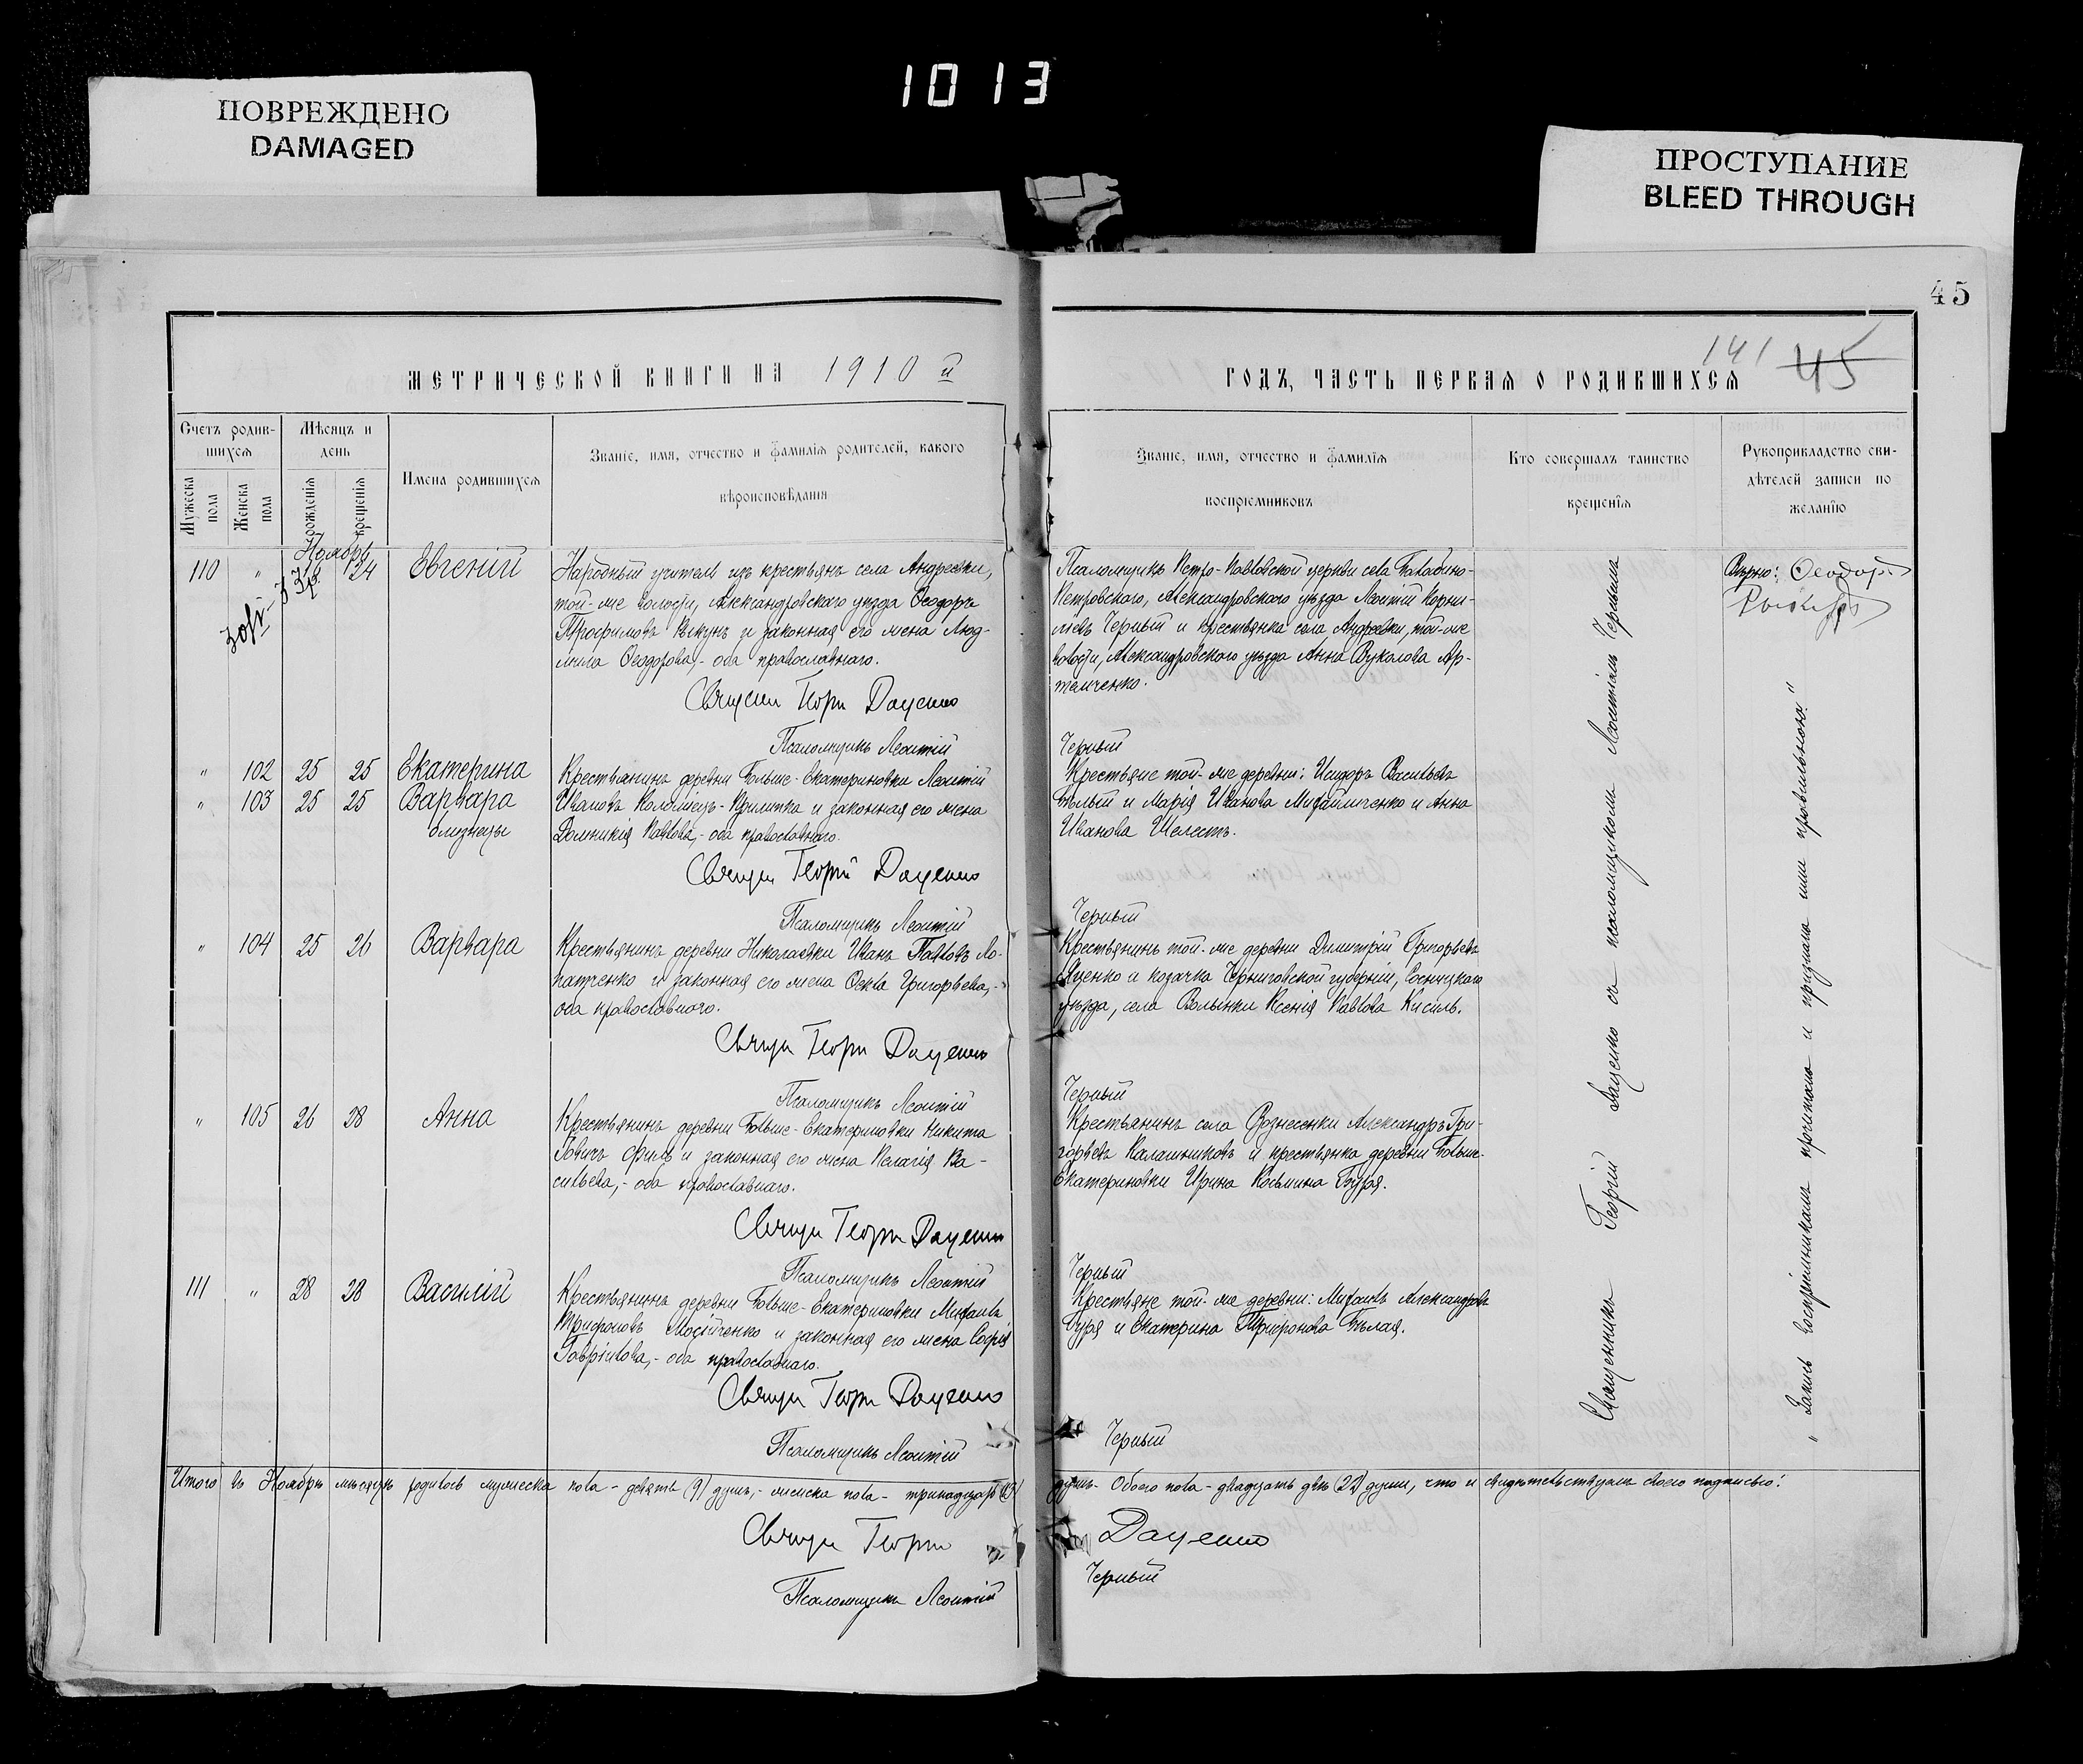 1013
ПОВРЕЖДЕНО
DAMAGED
ПРОСТУПАНИЕ
BLEED THROUGH
45
МЕТРИЧЕСКОЙ КНИГИ НА 1910 й
Счетъ родив-
шихся
Мѣсяцъ и
день
Мужеска
пола
Женска
пола
рожденія
крещенія
Имена родившихся
Званіе, имя, отчество и фамилія родителей, какого
вѣроисповѣданія
Ноябрь
110 " 24 Евгеній
Народный учитель изъ крестьянъ села Андреевки,
той-же волости, Александровскаго уѣзда Ѳеодоръ
Трофимовъ и законная его жена Люд-
мила Ѳеодорова,- оба православнаго.
Священ Георгій Даценко
Псаломщикъ Леонтій
" 102 25 25 Екатерина
" 103 25 25 Варвара
близнецы
Крестьянинъ деревни Больше-Екатериновки Леонтій
Ивановъ Коломіецъ-Крилитка и законная его жена
Домникія Павлова,- оба православнаго.
Священ Георгій Даценко
Псаломщикъ Леонтій
" 104 25 26 Варвара
Крестьянинъ деревни Николаевки Иванъ Павловъ Ло-
патченко и законная его жена Ѳекла Григорьева,-
оба православнаго.
Священ Георгій Даценко
Псаломщикъ Леонтій
" 105 26 28 Анна
Крестьянинъ деревни Больше-Екатериновки Никита
и законная его жена Пелагія Ва-
сильева,- оба православнаго.
Священ Георгій Даценко
Псаломщикъ Леонтій
111 " 28 28 Василій
Крестьянинъ деревни Больше-Екатериновки Михаилъ
Трифоновъ Мосійченко и законная его жена Софія
Гаврілова,- оба православнаго.
Священ Георгій Даценко
Псаломщикъ Леонтій
Итого въ Ноябрѣ мѣсяцѣ родилось мужеска пола - девять (9) душъ,- женска пола - тринадцать (13)
Священ Георгій
Псаломщикъ Леонтій
ГОДЪ, ЧАСТЬ ПЕРВАЯ О РОДИВШИХСЯ
141 45
Званіе, имя, отчество и фамилія
воспріемниковъ
Кто совершалъ таинство
крещенія
Рукоприкладство сви-
дѣтелей записи по
желанію
Псаломщикъ Петро-Павловской церкви села Балабино-
Петровскаго, Александровскаго уѣзда Леонтій Корни-
ліевъ Черный и крестьянка села Андреевки, той-же
волости, Александровскаго уѣзда Анна Вуколова Ар-
темченко.
Черный
Крестьяне той-же деревни: Исидоръ Васильевъ
Бѣлый и Марія Иванова Михайличенко и Анна
Иванова Шелестъ.
Черный
Крестьянинъ той-же деревни Димитрій Григорьевъ
Яценко и козачка Черниговской губерніи, Сосницкаго
уѣзда, села Волынки Ксенія Павлова Кисиль.
Черный
Крестьянинъ села Вознесенки Александръ Гри-
горьевъ Калашниковъ и крестьянка деревни Больше-
Екатериновки Ирина Косьмина Буря.
Черный
Крестьяне той-же деревни: Михаилъ Александровъ
Буря и Екатерина Трифонова Бѣлая.
Черный
душъ. Обоего пола - двадцать двѣ (22) души, что и свидѣтельствуемъ своею подписью:
Даценко
Черный
Священникъ Георгій Даценко съ псаломщикомъ Леонтіемъ Чернымъ
Вѣрно: Ѳеодоръ
"Запись воспріемникамъ прочитана и признана ими правильною."